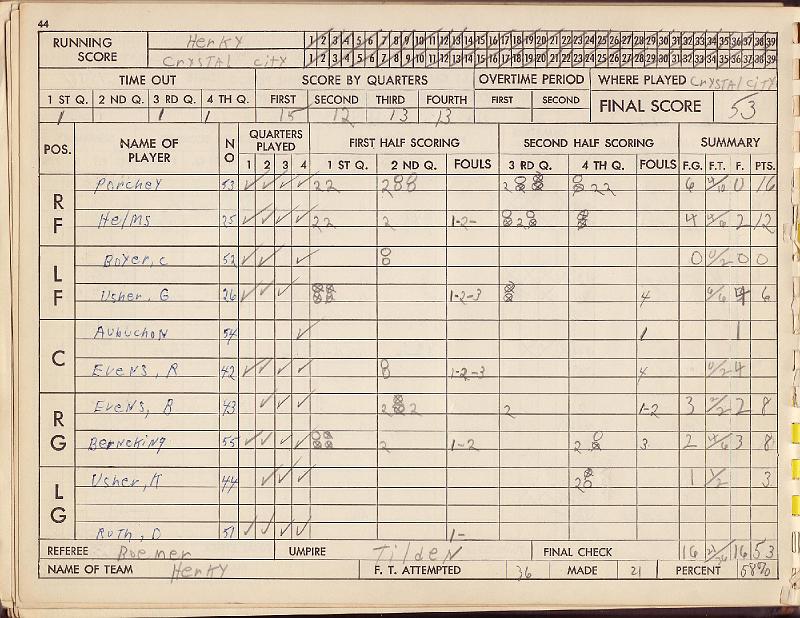 44
RUNNING SCORE Herky 1 2 3 4 5 6 7 8 9 10 11 12 13 14 15 16 17 18 19 20 21 22 23 24 25 26 27 28 29 30 31 32 33 34 35 36 37 38 39
Crystal City 1 2 3 4 5 6 7 8 9 10 11 12 13 14 15 16 17 18 19 20 21 22 23 24 25 26 27 28 29 30 31 32 33 34 35 36 37 38 39
TIME OUT SCORE BY QUARTERS OVERTIME PERIOD WHERE PLAYED Crystal City
1 ST Q. 2 ND Q. 3 RD Q. 4 TH Q. FIRST SECOND THIRD FOURTH FIRST SECOND FINAL SCORE 53
1 1 1 15 12 13 13
POS. NAME OF PLAYER NO QUARTERS PLAYED FIRST HALF SCORING SECOND HALF SCORING SUMMARY
1 2 3 4 1 ST Q. 2 ND Q. FOULS 3 RD Q. 4 TH Q. FOULS F.G. F.T. F. PTS.
RF Porchey 53 22 2 2 22 6 4/10 0 16
Helms 25 22 2 1-2- 2 4 4/6 2 12
LF Boyer, C 52 0 0/2 0 0
Usher, G 26 1-2-3 4 6/6 4 6
C Aubuchon 54 1 1
Evens, R 42 1-2-3 4 0/2 4
RG Evens, B 43 2 2 2 1-2 3 2/2 2 8
Berneking 55 2 1-2 2 3 2 4/6 3 8
LG Usher, K 44 2 1 1/2 3
Ruth, D 51 1-
REFEREE Boemer UMPIRE Tilden FINAL CHECK 16 21/36 16 53
NAME OF TEAM Herky F. T. ATTEMPTED 36 MADE 21 PERCENT 58%